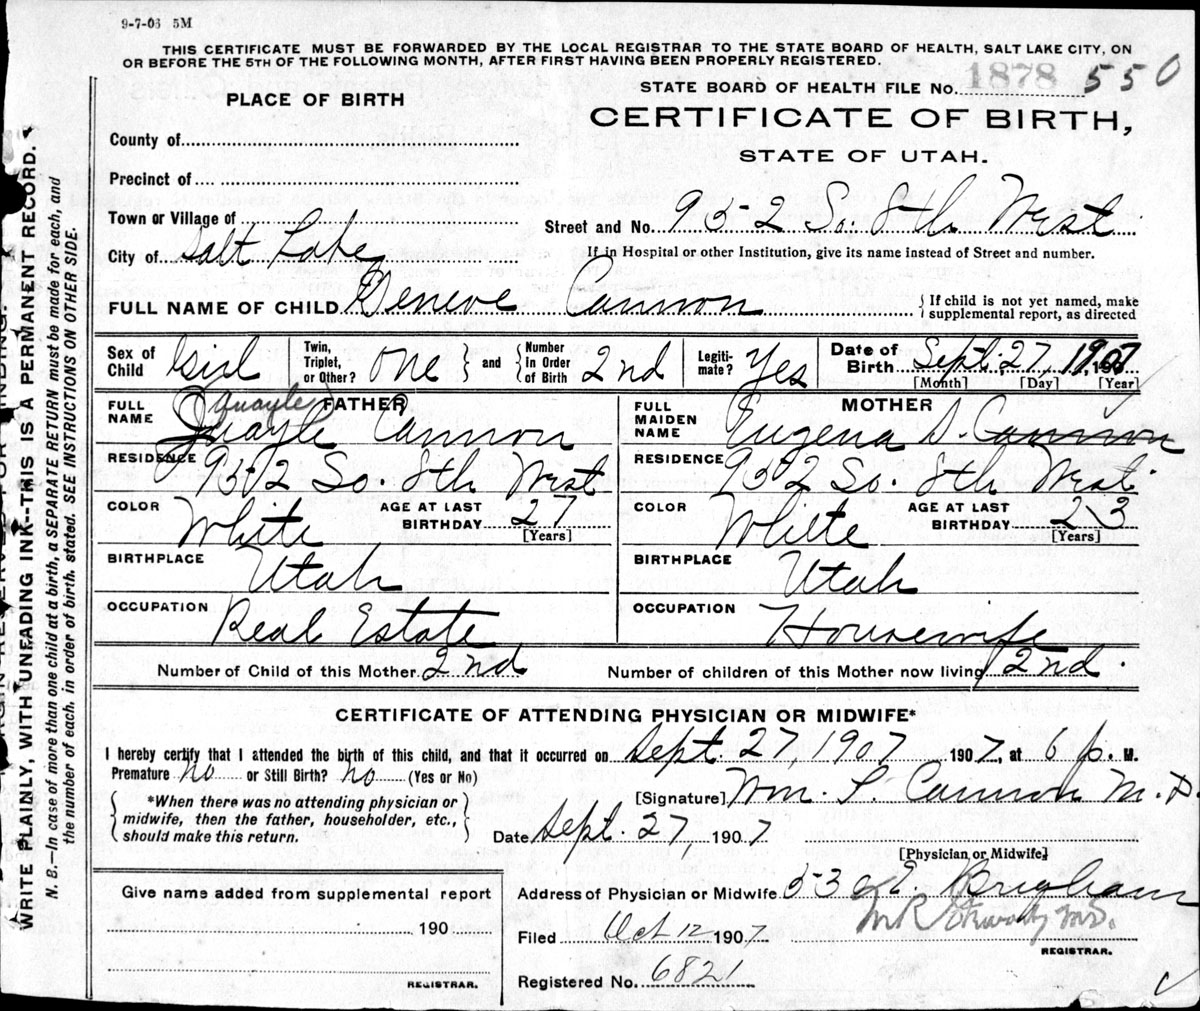 9-7-06 5M
THIS CERTIFICATE MUST BE FORWARDED BY THE LOCAL REGISTRAR TO THE STATE BOARD OF HEALTH, SALT LAKE CITY, ON
OR BEFORE THE 5TH OF THE FOLLOWING MONTH, AFTER FIRST HAVING BEEN PROPERLY REGISTERED.
PLACE OF BIRTH
County of
Precinct of
Town or Village of
City of Salt Lake
STATE BOARD OF HEALTH FILE No. 1878 550
CERTIFICATE OF BIRTH,
STATE OF UTAH.
Street and No. 952 So. 8th West
If in Hospital or other Institution, give its name instead of Street and number.
FULL NAME OF CHILD Geneve Cannon
If child is not yet named, make
supplemental report, as directed
Sex of Child Girl
Twin, Triplet, or Other? One and Number in Order of Birth 2nd
Legitimate? Yes
Date of Birth Sept. 27, 1907
[Month] [Day] [Year]
FATHER
FULL NAME Quayle Quayle Cannon
RESIDENCE 952 So. 8th West
COLOR White AGE AT LAST BIRTHDAY 27
[Years]
BIRTHPLACE Utah
OCCUPATION Real Estate
MOTHER
FULL MAIDEN NAME Eugena S. Cannon
RESIDENCE 952 So. 8th West
COLOR White AGE AT LAST BIRTHDAY 23
[Years]
BIRTHPLACE Utah
OCCUPATION Housewife
Number of Child of this Mother 2nd Number of children of this Mother now living 2nd.
CERTIFICATE OF ATTENDING PHYSICIAN OR MIDWIFE*
I hereby certify that I attended the birth of this child, and that it occurred on Sept. 27, 1907 1907, at 6 p. M.
Premature no or Still Birth? no (Yes or No)
*When there was no attending physician or
midwife, then the father, householder, etc.,
should make this return.
[Signature] Wm. T. Cannon M.D.
Date Sept. 27, 1907
[Physician or Midwife]
Give name added from supplemental report
190
REGISTRAR.
Address of Physician or Midwife 530 E. Brigham
Filed Oct 12 1907
M.D.
REGISTRAR.
Registered No. 6821
WRITE PLAINLY, WITH UNFADING INK--THIS IS A PERMANENT RECORD.
N. B.—In case of more than one child at a birth, a SEPARATE RETURN must be made for each, and
the number of each, in order of birth, stated. SEE INSTRUCTIONS ON OTHER SIDE.